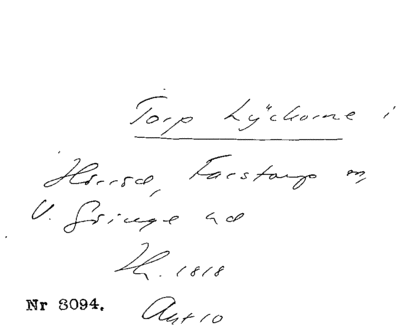 Torp Lyckorne i
Hörröd, Farstorp o,
V. Göinge hd
Hh. 1818
Nr 3094. Akt 10